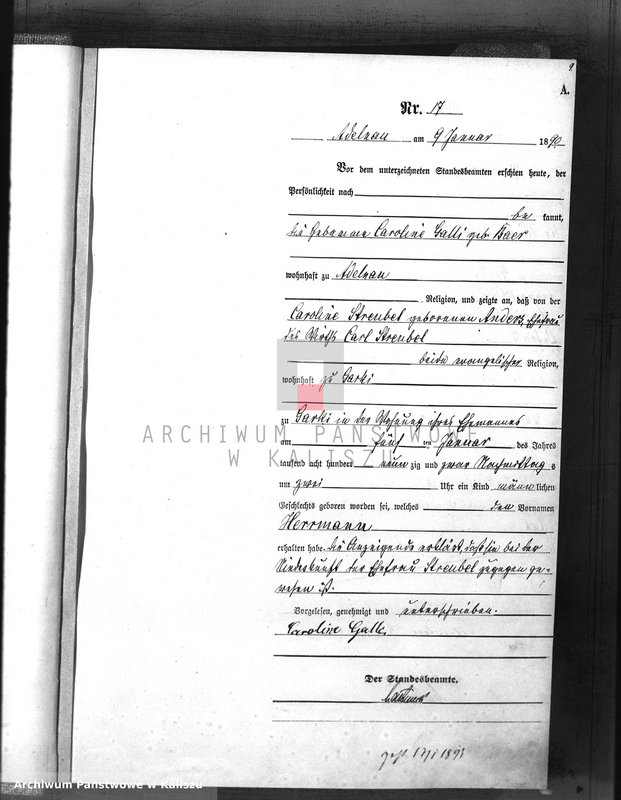 9.
A.
Nr. 17
Adelnau am 9 Januar 1890
Vor dem unterzeichneten Standesbeamten erschien heute, der
Persönlichkeit nach
be kannt,
die Hebamme Caroline Galli geb. Baer
wohnhaft zu Adelnau
Religion, und zeigte an, daß von der
Caroline Streubel geborenen Anders, Ehefrau
des Wirths Carl Streubel
beide evangelischer Religion,
wohnhaft zu Garki
zu Garki in der Wohnung ihres Ehemannes
am fünf ten Januar des Jahres
tausend acht hundert neun zig und zwar Nachmittag s
um zwei Uhr ein Kind männ lichen
Geschlechts geboren worden sei, welches den Vornamen
Herrmann
erhalten habe. Die Anzeigende erklärt, daß sie bei der
Niederkunft der Ehefrau Streubel zugegen ge-
wesen ist.
Vorgelesen, genehmigt und unterschrieben.
Caroline Galle.
Der Standesbeamte.
ARCHIWUM PAŃSTWOWE
W KALISZU
Archiwum Państwowe w Kaliszu